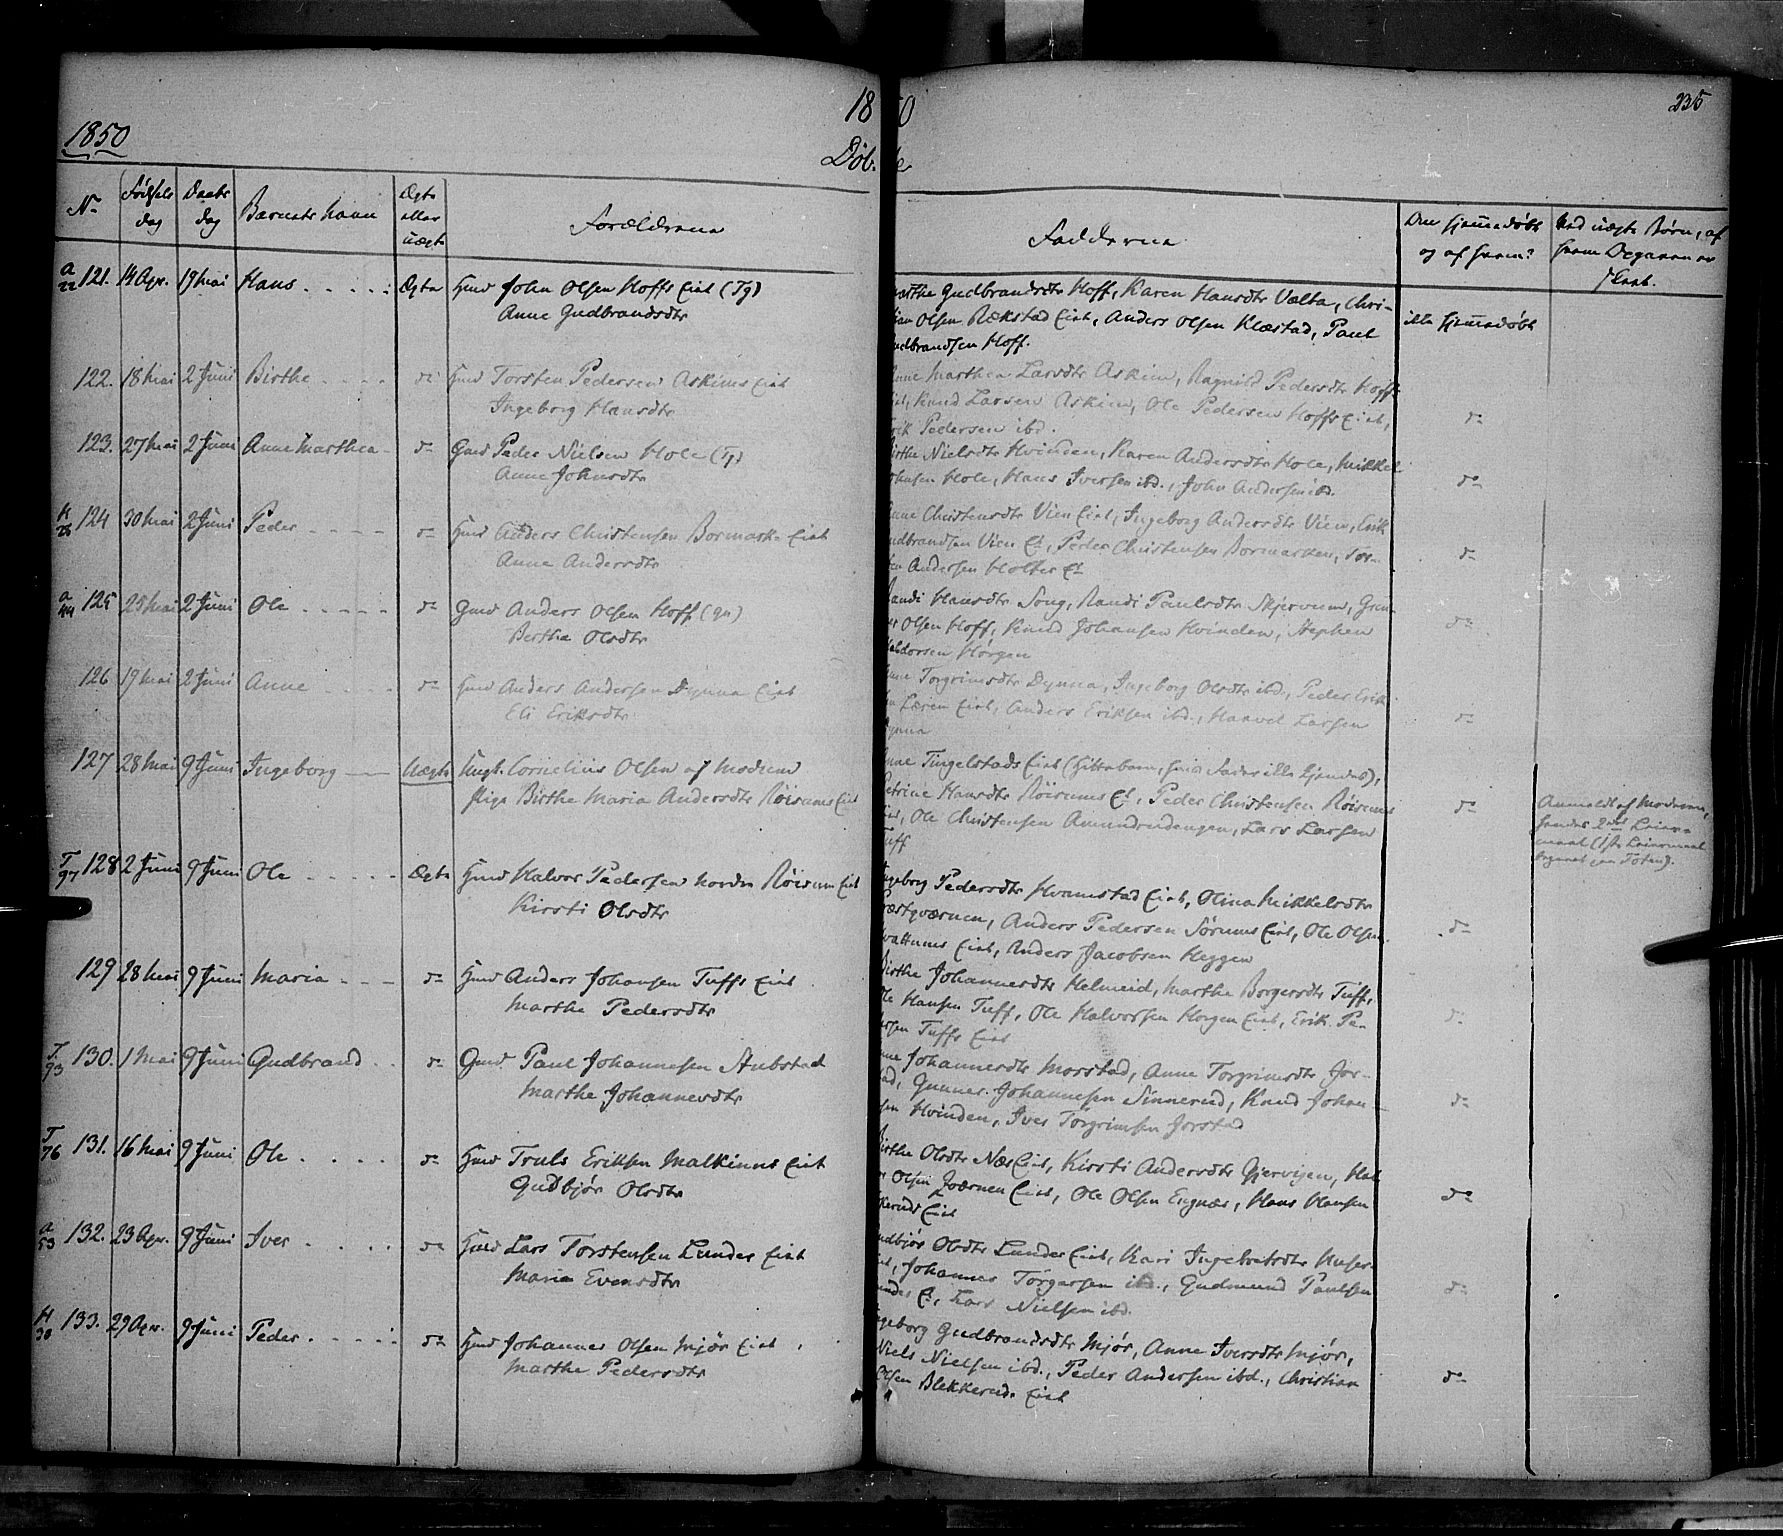 1850
18
50
235
Döb.
te
No
Födsels dag
Daabs dag
Barnets Navn
Ægte eller uægte
Forældrene
Fadderne
Om hjemmedøbt og af hvem?
Ved uægte Børn, af hvem Opgaven er skeet.
a 22 121. 14 Apr. 19 Mai Hans Ægte Huusmd John Olsen Hoffs Eiet (Tg)
Anne Gudbrandsdtr
Marthe Gudbrandsdtr Hoff, Karen Hansdtr Velta, Chri-
stian Olsen Rækstad Eiet, Anders Olsen Klæstad, Paul
Gudbrandsen Hoff.
ikke hjemmedøbt
122. 18 Mai 2 Juni Birthe do Hmd Torsten Pedersen Askims Eiet
Ingeborg Hansdtr
Anne Marthea Larsdtr Askim, Ragnild Pedersdtr Hoffs
Eiet, Knud Larsen Askim, Ole Pedersen Hoffs Eiet,
Erik Pedersen ibd.
do
123. 27 Mai 2 Juni Anne Marthea do Gmd Peder Nielsen Hole (Tj)
Anne Johnsdtr
Birthe Nielsdtr Hvinden, Karen Andersdtr Hole, Mikkel
Johnsen Hole, Hans Iversen ibd., John Andersen ibd.
do
H 28 124 30 Mai 2 Juni Peder do Hmd Anders Christensen Bormark Eiet
Anne Andersdtr
Anne Christensdtr Vien Eiet, Ingeborg Andersdtr Vien, Erik
Gudbrandsen Vien Et, Peder Christensen Bormarken, Tor-
sten Andersen Holter Et
do
a 44 125 25 Mai 2 Juni Ole do Gmd Anders Olsen Hoff (gn)
Berthe Olsdtr
Randi Hansdtr Song, Randi Paulsdtr Skjervum, Gun-
ner Olsen Hoff, Knud Johansen Hvinden, Stephen
Haldorsen Hørgen
do
126 19 Mai 2 Juni Anne do Hmd Anders Andersen Dynna Eiet
Eli Eriksdtr
Anne Torgrimsdtr Dynna, Ingeborg Olsdtr ibd., Peder Erik-
sen Læren Eiet, Anders Eriksen ibd., Haavel Larsen
Dynna
do
127 28 Mai 9 Juni Ingeborg Uægte Ungk. Cornelius Olsen af Modum
Pige Birthe Maria Andersdtr Röisums Eiet
Anne Tingelstads Eiet (Hittebarn, hvis Fader ikke kjendes),
Petrine Hansdtr Röisums Et, Peder Christensen Röisums
Eiet, Ole Christensen Amundrudengen, Lars Larsen
Tuff
do
Anmeldt af Moderen,
hendes 2det Leier-
maal (1ste Leiermaal
begaaet paa Toten).
T 97 128 2 Juni 9 Juni Ole Ægte Hmd Halvor Pedersen nordre Röisum Eiet
Kirsti Olsdtr
Ingeborg Pedersdtr Hvamstad Eiet, Olina Mikkelsdtr
Præstqværnen, Anders Pedersen Sörums Eiet, Ole Olsen
Hvattums Eiet, Anders Jacobsen Heggen
do
129 28 Mai 9 Juni Maria do Hmd Anders Johansen Tuffs Eiet
Marthe Pedersdtr
Birthe Johannesdtr Helmeid, Marthe Borgersdtr Tuff,
Ole Hansen Tuff, Ole Halvorsen Horgen Eiet, Erik Pe-
dersen Tuffs Eiet
do
T 93 130. 1 Mai 9 Juni Gudbrand do Gmd Paul Johannesen Stubstad
Marthe Johannesdtr
Anne Johannesdtr Morstad, Anne Torgrimsdtr Jor-
stad, Gunner Johannesen Sinnerud, Knud Johan-
sen Hvinden, Iver Torgrimsen Jorstad
do
T 76 131. 16 Mai 9 Juni Ole do Hmd Truls Eriksen Malkinns Eiet
Gudbjör Olsdtr
Birthe Olsdtr Næs Eiet, Kirsti Andersdtr Gjervigen, Hal-
vor Olsen Qværnen Eiet, Ole Olsen Engnæs, Hans Hansen
Eiet
do
a 53 132. 23 Apr. 9 Juni Iver do Hmd Lars Torstensen Lunder Eiet
Maria Evensdtr
Gudbjör Olsdtr Lunder Eiet, Kari Ingebretsdtr Huser-
Eiet, Johannes Torgersen ibd., Gudmund Paulsen
Lunder Et, Lars Nielsen ibd.
do
H 30 133. 29 Apr. 9 Juni Peder do Hmd Johannes Olsen Mjör Eiet
Marthe Pedersdtr
Ingeborg Gudbrandsdtr Mjör, Anne Iversdtr Mjör,
Niels Nielsen ibd., Peder Andersen ibd., Christian
Olsen Blekkerud Eiet
do